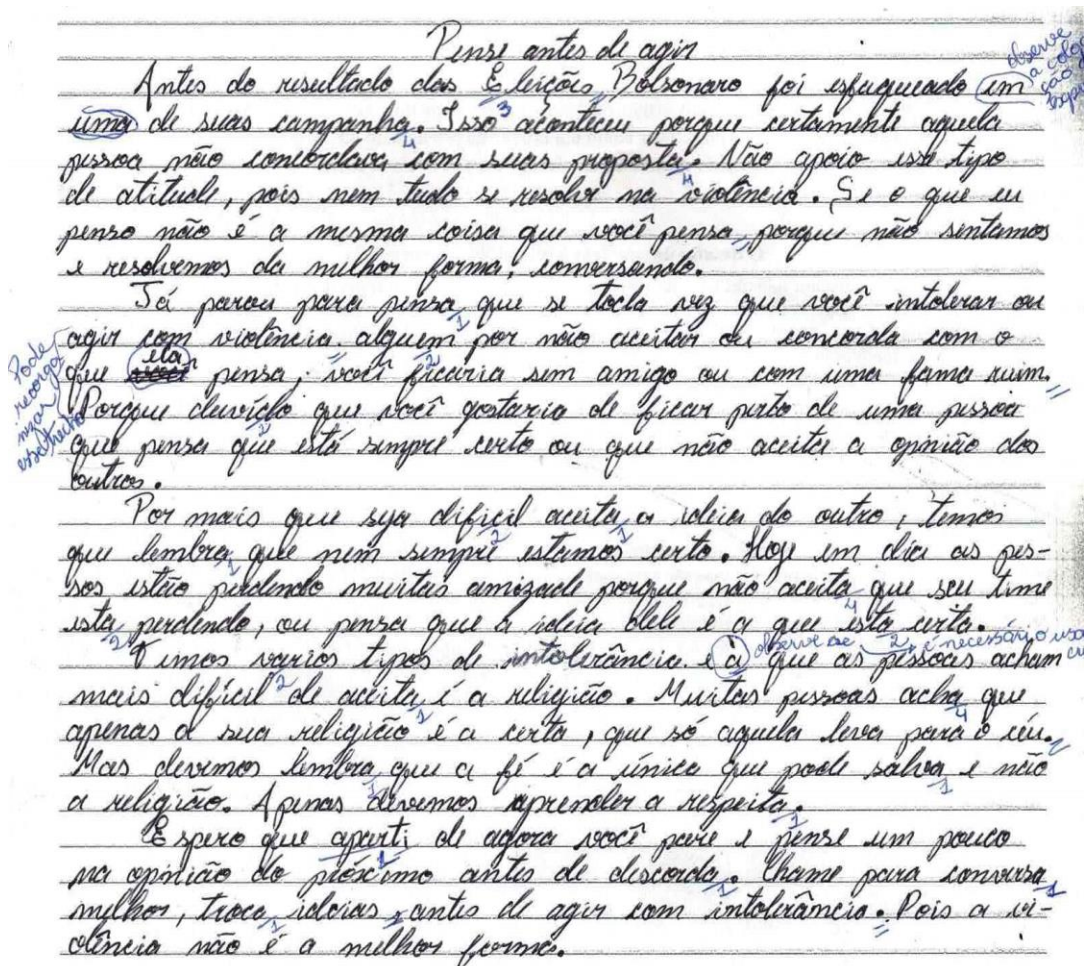 Pense antes de agir
Antes do resultado das Eleições, Bolsonaro foi esfaqueado em
uma de suas campanha. Isso aconteceu porque certamente aquela
pessoa não concordava com suas proposta. Não apoio esse tipo
de atitude, pois nem tudo se resolve na violência. Se o que eu
penso não é a mesma coisa que você pensa, porque não sentamos
e resolvemos da melhor forma, conversando.
Já parou para pensa que se toda vez que você intolerar ou
agir com violência alguem por não aceitar ou concorda com o
que ela pensa, você ficaria sem amigo ou com uma fama ruim.
Porque duvído que você gostaria de ficar perto de uma pessoa
que pensa que está sempre certo ou que não aceita a opinião dos
outros.
Por mais que seja dificil aceita a ideia do outro, temos
que lembra que nem sempre estamos certo. Hoje em dia as pes-
sos estão perdendo muitas amizade porque não aceita que seu time
esta perdendo, ou pensa que a ideia dele é a que esta certa.
Temos varios tipos de intolerância e à que as pessoas acham
mais difícil de aceita é a religião. Muitas pessoas acha que
apenas a sua religião é a certa, que só aquela leva para o céu.
Mas devemos lembra que a fé é a única que pode salva e não
a religião. Apenas devemos aprender a respeita.
Espero que aparti de agora você pare e pense um pouco
na opinião do próximo antes de discorda. Chame para conversa
melhor, troca ideias, antes de agir com intolerância. Pois a vi-
olência não é a melhor forma.
observe
a
Pode
reorga
nizar
esse trecho
observe se é necessário o uso